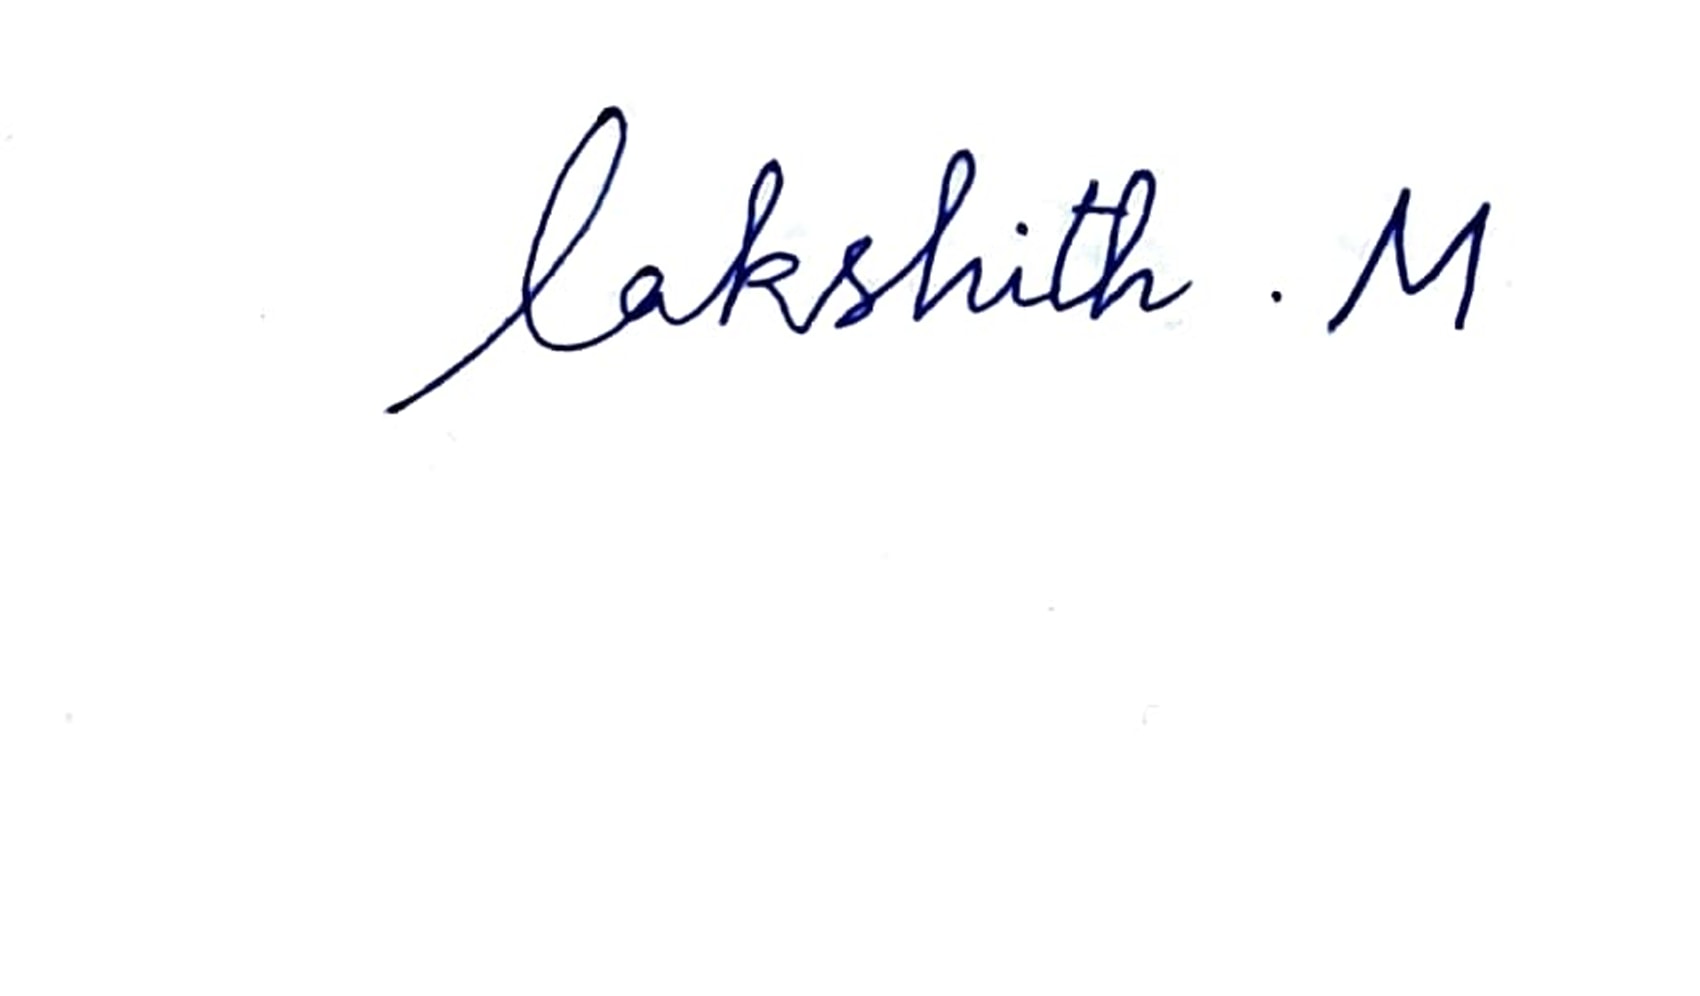 Lakshith . M